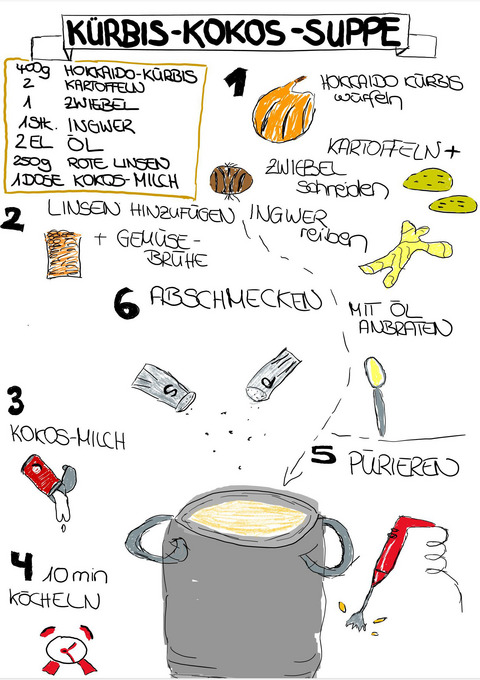 KÜRBIS-KOKOS-SUPPE
400g HOKKAIDO-KÜRBIS
2 KARTOFFELN
1 ZWIEBEL
1 Stk. INGWER
2 EL ÖL
250g ROTE LINSEN
1 DOSE KOKOS-MILCH
1
HOKKAIDO KÜRBIS
würfeln
KARTOFFELN +
ZWIEBEL
schneiden
INGWER
reiben
MIT ÖL
ANBRATEN
2
LINSEN HINZUFÜGEN
+ GEMÜSE-
BRÜHE
3
KOKOS-MILCH
4 10 min
KÖCHELN
5 PÜRIEREN
6 ABSCHMECKEN
S
P